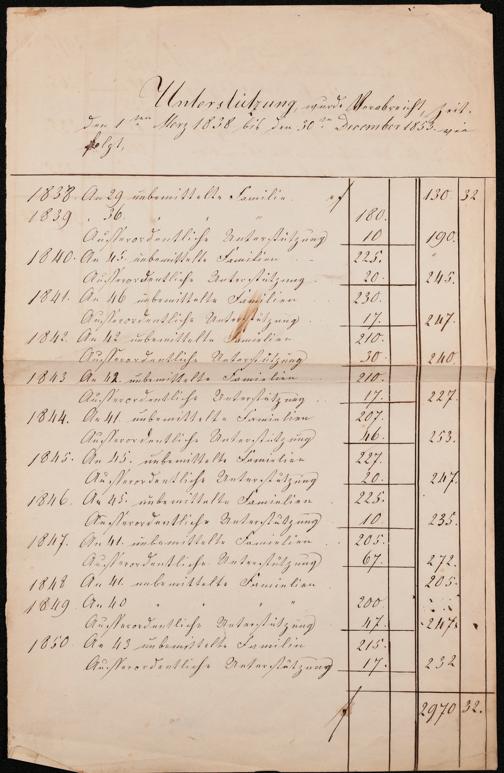 Unterstützung, wurde Verabreicht, seit.
den 1ten Merz 1838 bis den 30te December 1853 wie
folgt,
1838. An 29 unbemittelte Familien 130. 32
1839 " 36. " " " 180.
Ausserordentliche Unterstützung 10 190.
1840. An 45 unbemittelte Familien 225.
Ausserordentliche Unterstützung 20. 245.
1841. An 46 unbemittelte Familien 230.
Ausserordentliche Unterstützung 17. 247.
1842. An 42 unbemittelte Familien 210.
Ausserordentliche Unterstützung 30 240
1843 An 42 unbemittelte Familien 210.
Ausserordentliche Unterstützung 17. 227.
1844. An 41 unbemittelte Famielien 207.
Ausserordentliche Unterstützung 46. 253.
1845. An 45. unbemittelte Famielien 227.
Ausserordentliche Unterstützung 20. 247.
1846. An 45 unbemittelte Famielien 225.
Ausserordentliche Unterstützung 10 235.
1847. An 41 unbemittelte Famielien 205.
Ausserordentliche Unterstützung 67. 272.
1848 An 41 unbemittelte Famielien 205.
1849 An 40 " " " 200.
Ausserordentliche Unterstützung 47. 247.
1850. An 43 unbemittelte Familin 215.
Ausserordentliche Unterstützung 17. 232
2970 32.